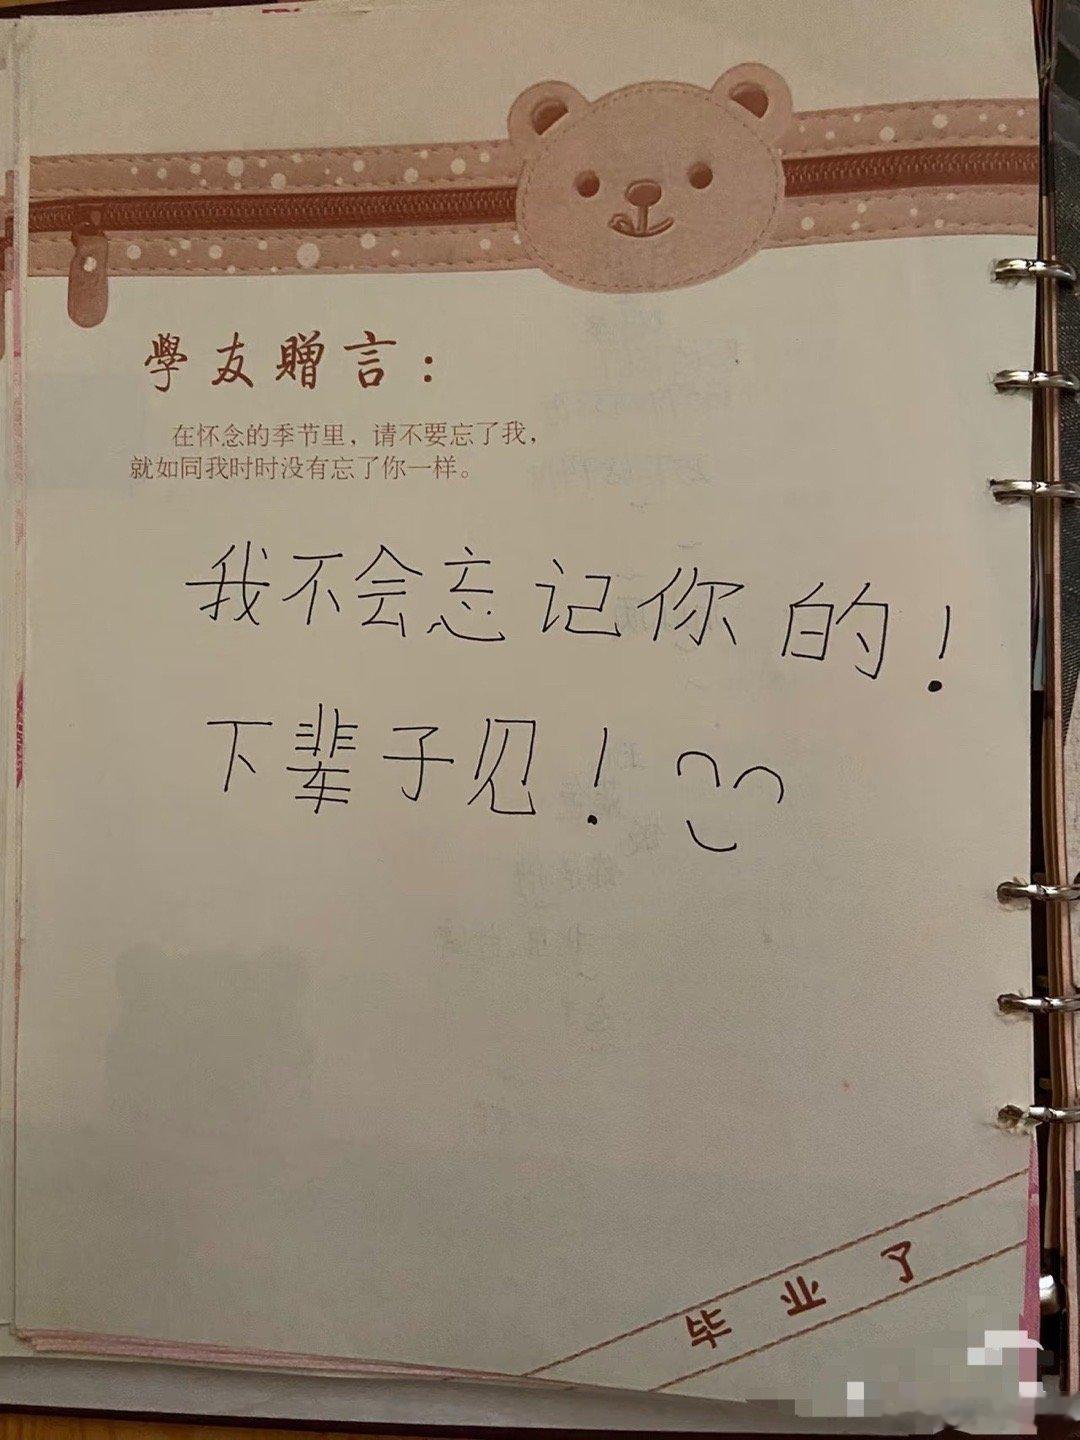 學友贈言：
在怀念的季节里，请不要忘了我，
就如同我时时没有忘了你一样。
我不会忘记你的！
下辈子见！
毕业了